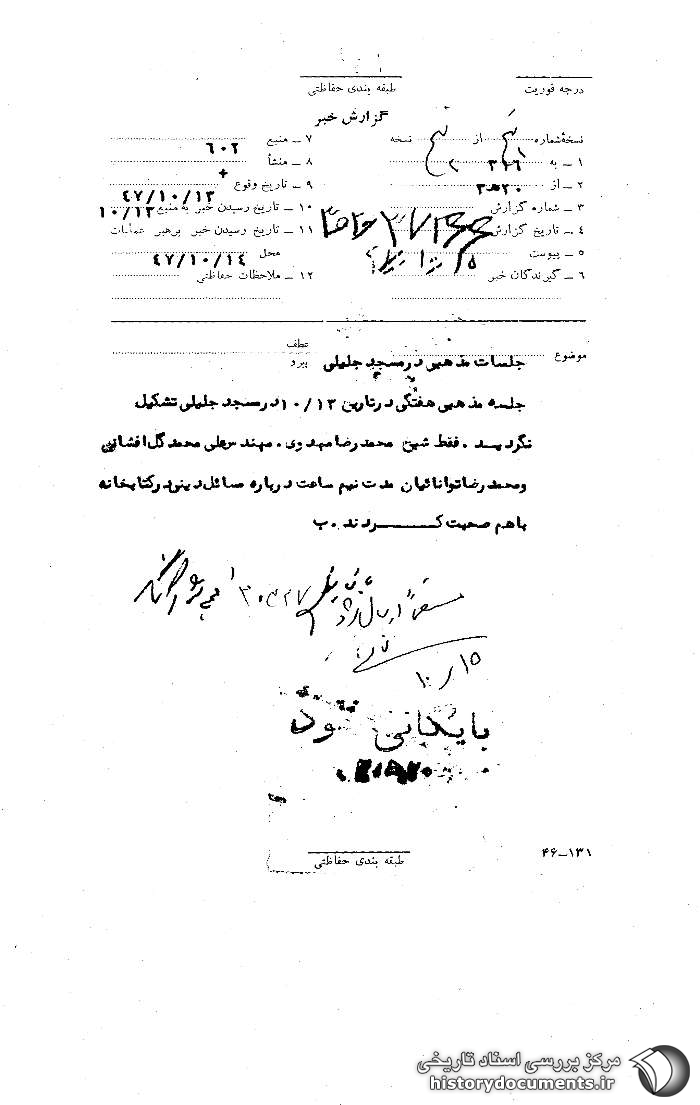 درجه فوریت
طبقه بندی حفاظتی
گزارش خبر
نسخهٔ شماره از نسخه
۱ ـ به ۳۱۶
۲ ـ از ۲۰ه۳
۳ ـ شماره گزارش
۴ ـ تاریخ گزارش
۵ ـ پیوست
۶ ـ گیرندگان خبر
۷ ـ منبع ۶۰۲
۸ ـ منشأ
۹ ـ تاریخ وقوع ۴۷/۱۰/۱۳
۱۰ ـ تاریخ رسیدن خبر به منبع ۱۰/۱۳
۱۱ ـ تاریخ رسیدن خبر برهبر عملیات
محل ۴۷/۱۰/۱۴
۱۲ ـ ملاحظات حفاظتی
موضوع جلسات مذهبی در مسجد جلیلی
عطف
پیرو
جلسه مذهبی هفتگی در تاریخ ۱۰/۱۳ در مسجد جلیلی تشکیل
نگردید . فقط شیخ محمد رضا مهدوی . مهندس علی محمد گل افشانی
و محمد رضا توانائیان مدت نیم ساعت درباره مسائل دینی در کتابخانه
باهم صحبت کـــردند . ب
۱۰/۱۵
بایگانی شود
طبقه بندی حفاظتی
۴۶–۱۳۱
مرکز بررسی اسناد تاریخی
historydocuments.ir